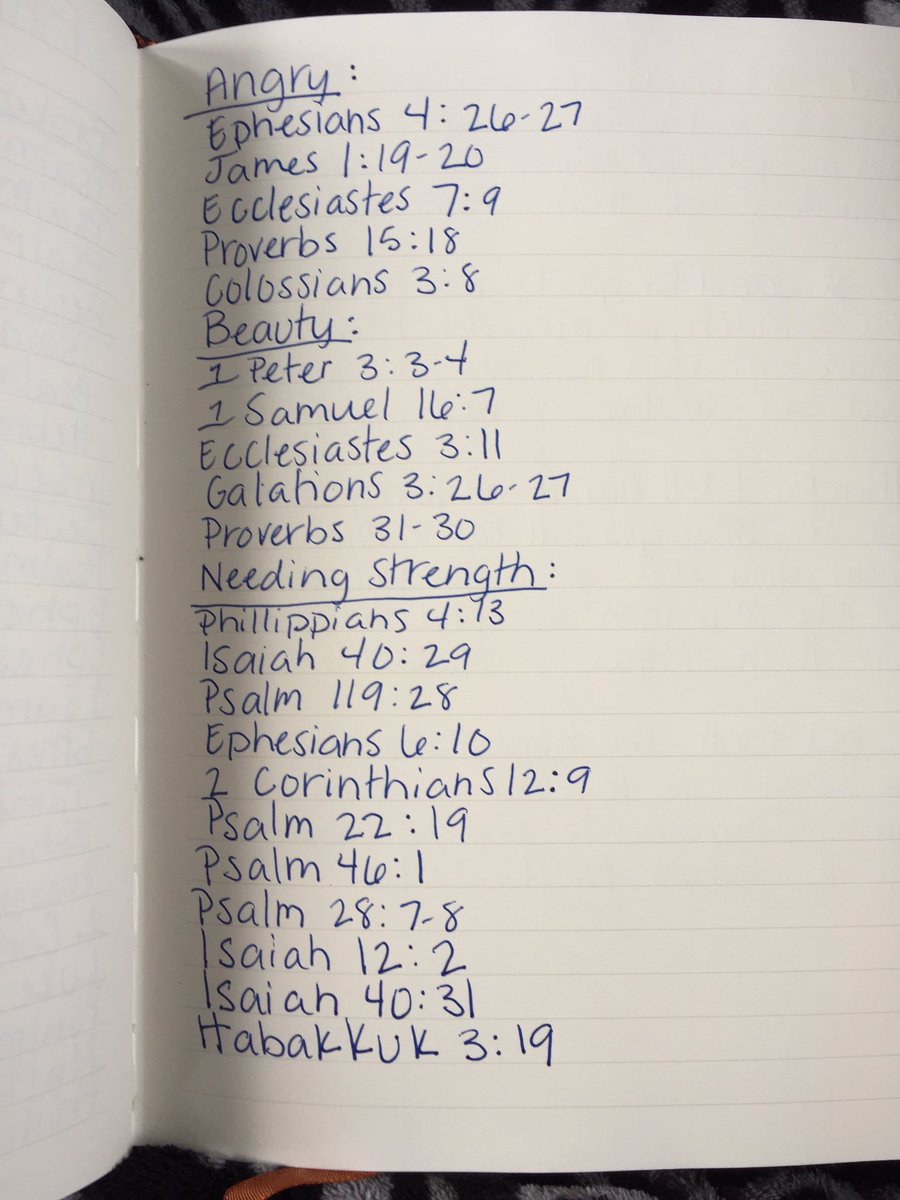 Angry:
Ephesians 4:26-27
James 1:19-20
Ecclesiastes 7:9
Proverbs 15:18
Colossians 3:8
Beauty:
1 Peter 3:3-4
1 Samuel 16:7
Ecclesiastes 3:11
Galations 3:26-27
Proverbs 31-30
Needing Strength:
Phillippians 4:13
Isaiah 40:29
Psalm 119:28
Ephesians 6:10
2 Corinthians 12:9
Psalm 22:19
Psalm 46:1
Psalm 28:7-8
Isaiah 12:2
Isaiah 40:31
Habakkuk 3:19